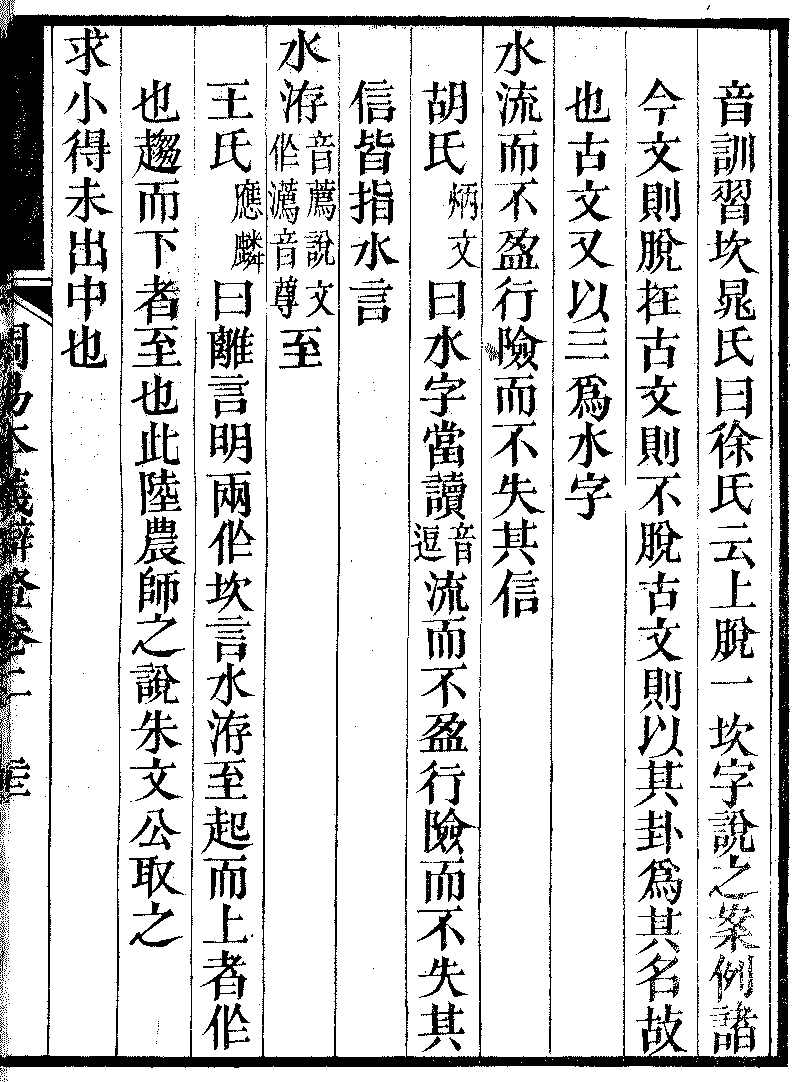 音訓習坎晁氏曰徐氏云上脫一坎字說之案例諸
今文則脫在古文則不脫古文則以其卦爲其名故
也古文又以三爲水字
水流而不盈行險而不失其信
胡氏炳文曰水字當讀音逗流而不盈行險而不失其
信皆指水言
水洊音薦說文作瀳音尊至
王氏應麟曰離言明兩作坎言水洊至起而上者作
也趨而下者至也此陸農師之說朱文公取之
求小得未出中也
周易本義辯證卷二